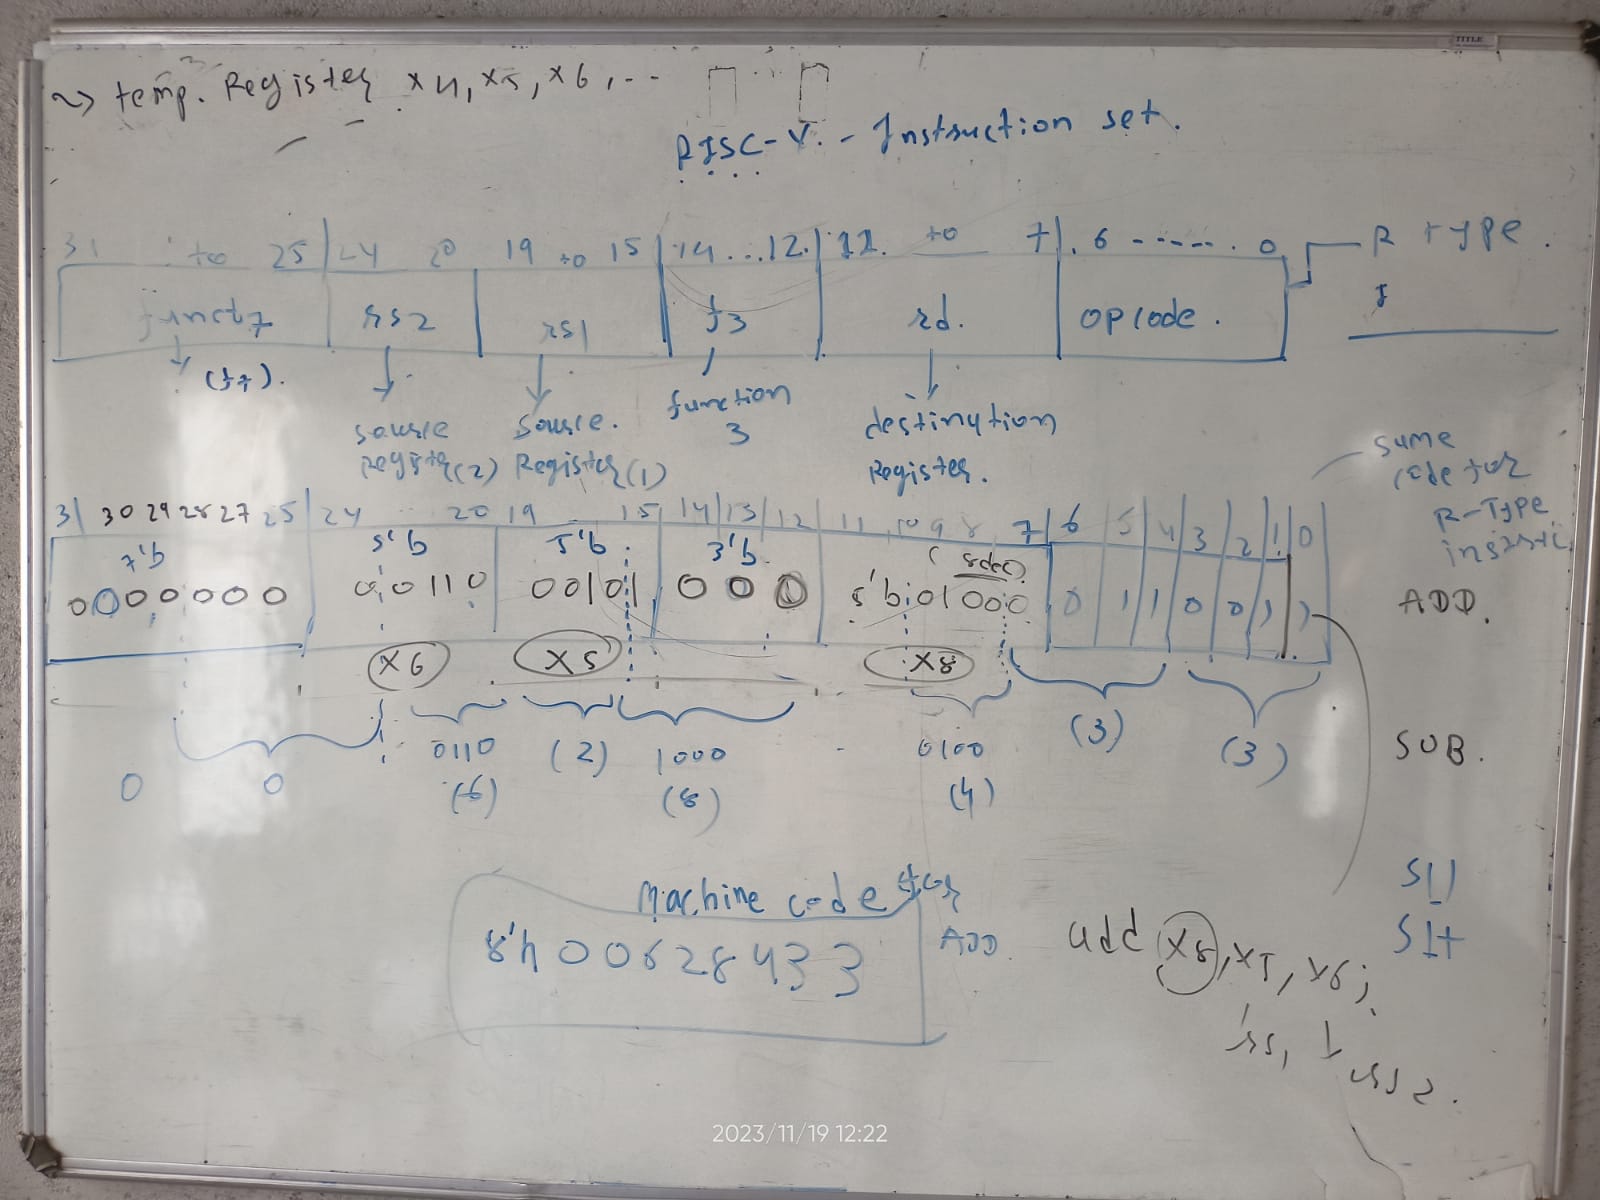 ~> temp. Register x4, x5, x6, ...
TITLE
RISC-V. - Instruction set.
31 to 25 | 24 20 19 to 15 | 14 ... 12. | 11. to 7 | . 6 ------ . 0
R TYPE .
I
funct7 rs2 rs1 f3 rd. opcode .
(f7).
source Register(2)
source. Register(1)
function 3
destination Register.
same code for R-Type instric
31 30 29 28 27 25 | 24 .. 20 19 .. 15 14 13 12 11 10 9 8 7 6 5 4 3 2 1 0
7'b 5'b 5'b 3'b (8dec)
0000000 00110 00101 000 5'b 01000 0 1 1 0 0 1 1
ADD.
x6 x5 x8
0 0 0110 (2) 1000 0100 (3) (3)
SUB.
(6) (8) (4)
Machine code for ADD
8'h 00628433
sll
slt
add x8, x5, x6;
rs1 rs2.
2023/11/19 12:22